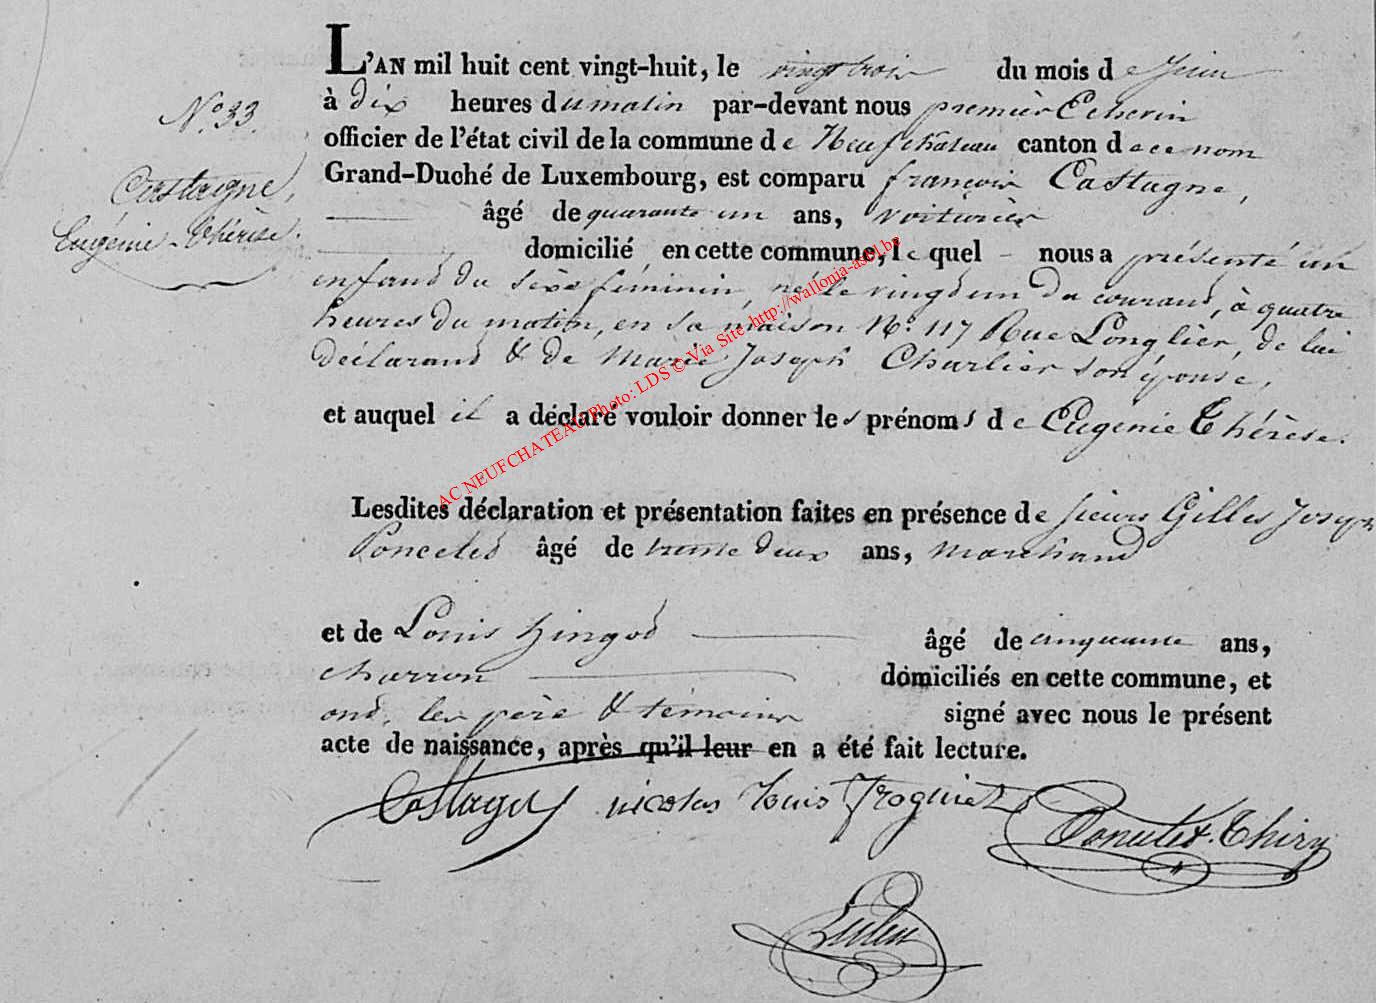 L'AN mil huit cent vingt-huit, le vingt trois du mois de Juin
No. 33. à dix heures du matin par-devant nous premièr Echevin
officier de l'état civil de la commune de Neufchateau canton de ce nom
Castagne, Grand-Duché de Luxembourg, est comparu françois Castagne,
âgé de quarante un ans, voiturier
Eugénie-Thérèse. domicilié en cette commune, le quel nous a présenté un
enfand du sèxe féminin, né le vingd un du courand, à quatre
heures du matin, en sa maison No. 117 Rue Longlier, de lui
déclarand & de Marie Joseph Charlier son épouse,
et auquel il a déclaré vouloir donner les prénoms de Eugénie Thérèse.
AC NEUFCHATEAU Photo: LDS © Via Site http://wallonia-asbl.be
Lesdites déclaration et présentation faites en présence de sieurs Gilles Joseph
Ponceled âgé de trente deux ans, marchand
et de Louis âgé de cinquante ans,
charron domiciliés en cette commune, et
ond, les père & témoins signé avec nous le présent
acte de naissance, après qu'il leur en a été fait lecture.
Castagne nicolas Louis